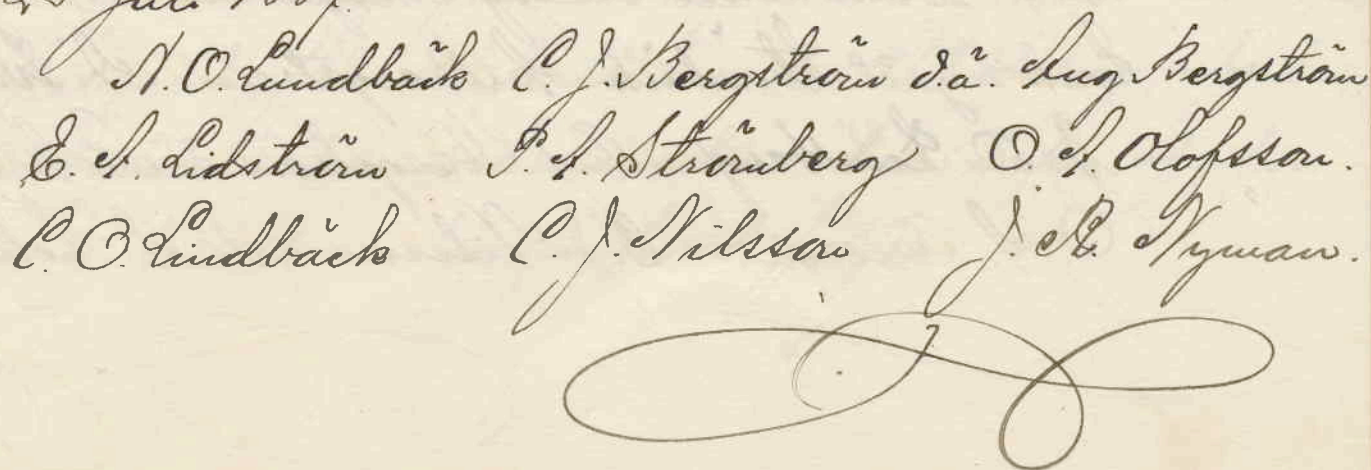 Juli
N. O. Lundbäck C. J. Bergström d.ä. Aug Bergström
E. A. Lidström P. A. Strömberg O. A. Olofsson.
C. O. Lindbäck C. J. Nilsson J. R. Nyman.